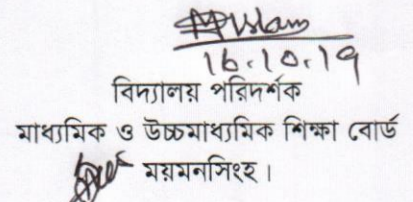 16.10.19
বিদ্যালয় পরিদর্শক
মাধ্যমিক ও উচ্চমাধ্যমিক শিক্ষা বোর্ড
ময়মনসিংহ।